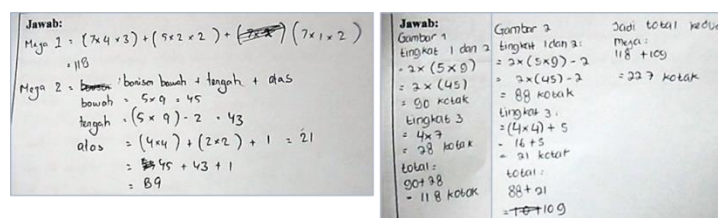 Jawab:
Meja 1 = (7x4x3) + (5x2x2) + (7x1x2)
= 118
Meja 2 = barisan bawah + tengah + atas
bawah = 5x9 = 45
tengah = (5x9) - 2 = 43
atas = (4x4) + (2x2) + 1 = 21
= 45 + 43 + 1
= 89
Jawab:
Gambar 1
tingkat 1 dan 2
= 2x (5x9)
= 2x (45)
= 90 kotak
tingkat 3
= 4x7
= 28 kotak
total:
90+28
= 118 kotak
Gambar 2
tingkat 1 dan 2:
= 2x(5x9) - 2
= 2x(45) - 2
= 88 kotak
tingkat 3:
= (4x4) + 5
= 16 + 5
= 21 kotak
total:
88+21
= 109
Jadi total kedu
meja:
118 + 109
= 227 kotak